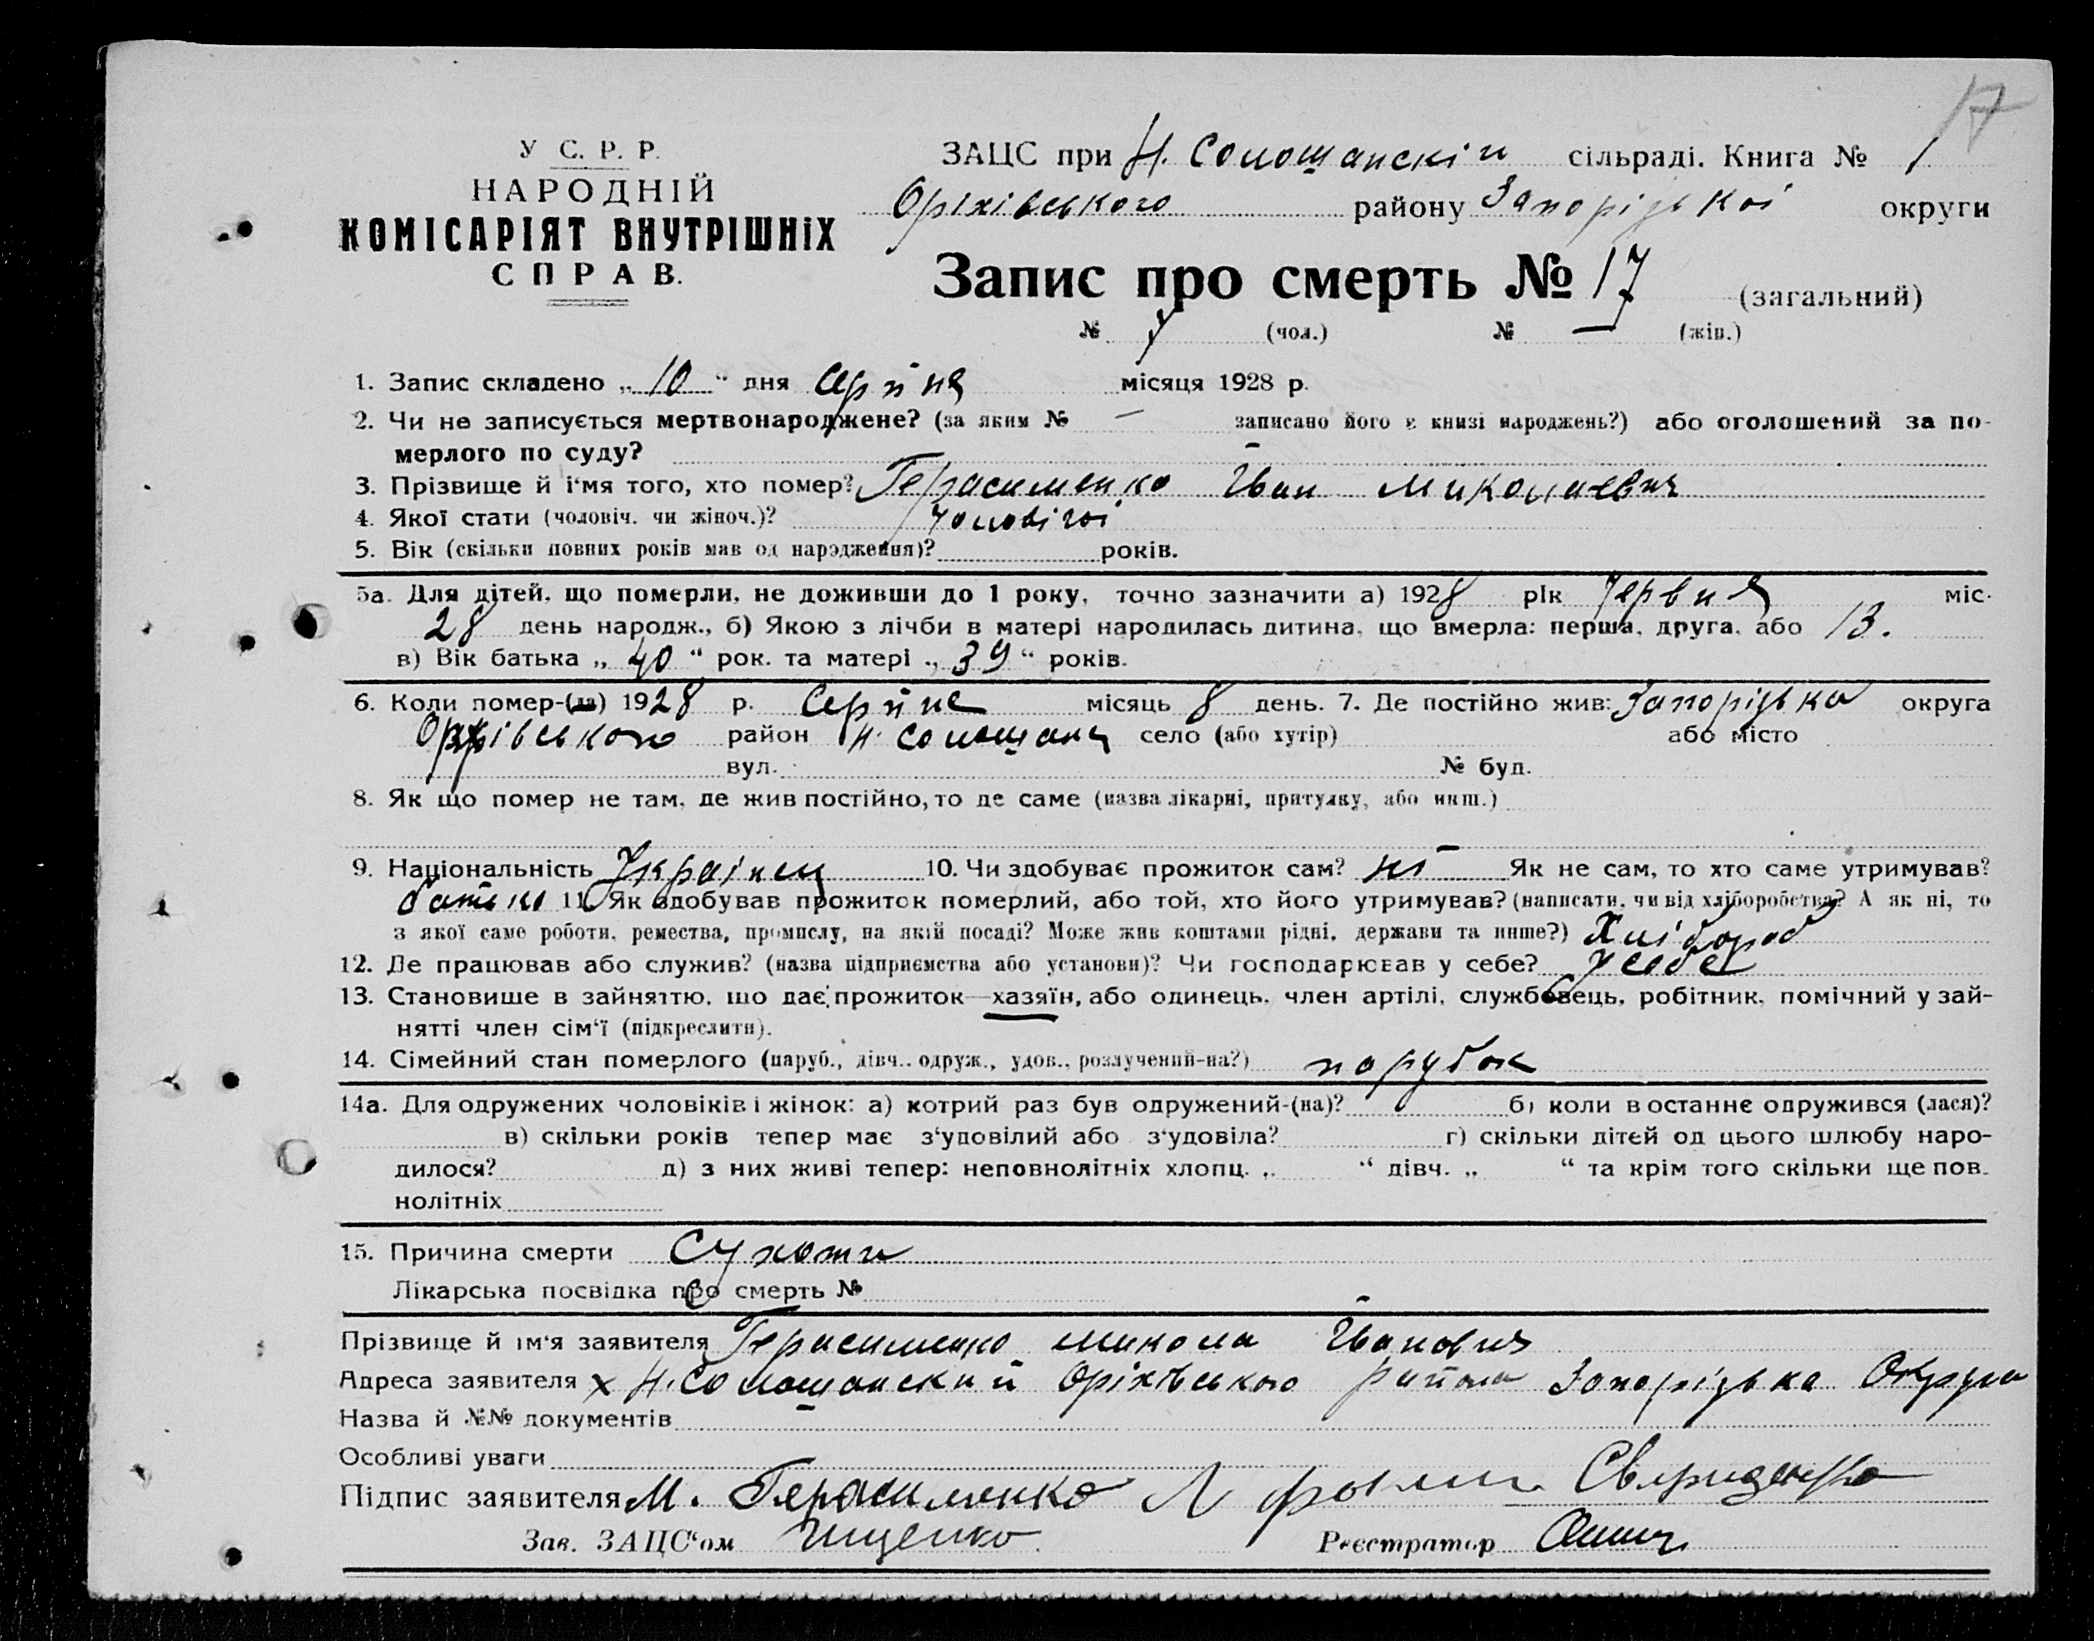 17
У С. Р. Р.
НАРОДНІЙ
КОМІСАРІЯТ ВНУТРІШНІХ
СПРАВ.
ЗАЦС при Н. Солошанскій сільраді. Книга № 1
Оріхівського району Запорізької округи
Запис про смерть № 17 (загальний)
№ 7 (чол.) № — (жін.)
1. Запис складено „ 10 “ дня Серпня місяця 1928 р.
2. Чи не записується мертвонароджене? (за яким № — записано його в книзі народжень?) або оголошений за по-
мерлого по суду?
3. Прізвище й і‘мя того, хто помер? Герасименко Іван Миколаевич
4. Якої стати (чоловіч. чи жіноч.)? Чоловічої
5. Вік (скільки повних років мав од народження)? років.
5а. Для дітей, що померли, не доживши до 1 року, точно зазначити а) 1928 рік Червня міс.
28 день народж., б) Якою з лічби в матері народилась дитина, що вмерла: перша, друга, або 13.
в) Вік батька „ 40 “ рок. та матері „ 39 “ років.
6. Коли помер-(ла) 1928 р. Серпня місяць 8 день. 7. Де постійно жив: Запорізька округа
Оріхівського район Н. Солошани село (або хутір) або місто
вул. № буд.
8. Як що помер не там, де жив постійно, то де саме (назва лікарні, притулку, або инш.)
9. Національність Українец 10. Чи здобуває прожиток сам? ні Як не сам, то хто саме утримував?
батько 11. Як здобував прожиток померлий, або той, хто його утримував? (написати, чи від хліборобства? А як ні, то
з якої саме роботи, ремества, промислу, на якій посаді? Може жив коштами рідні, держави та инше?) Хлібороб
12. Де працював або служив? (назва підприємства або установи)? Чи господарював у себе? У себе
13. Становище в зайняттю, що дає прожиток—хазяїн, або одинець, член артілі, службовець, робітник, помічний у зай-
нятті член сім‘ї (підкреслити).
14. Сімейний стан померлого (паруб., дівч., одруж., удов., розлучений-на?) парубок
14а. Для одружених чоловіків і жінок: а) котрий раз був одружений-(на)? б) коли в останнє одружився (лася)?
в) скільки років тепер має з‘удовілий або з‘удовіла? г) скільки дітей од цього шлюбу наро-
дилося? д) з них живі тепер: неповнолітніх хлопц. „ “ дівч. „ “ та крім того скільки ще пов-
нолітніх
15. Причина смерти Сухоти
Лікарська посвідка про смерть №
Прізвище й ім‘я заявителя Герасименко Микола Іванович
Адреса заявителя х Н. Солошанский Оріхівського района Запорізька Округа
Назва й №№ документів
Особливі уваги
Підпис заявителя М. Герасименко
Зав. ЗАЦС‘ом Іщенко Реєстратор